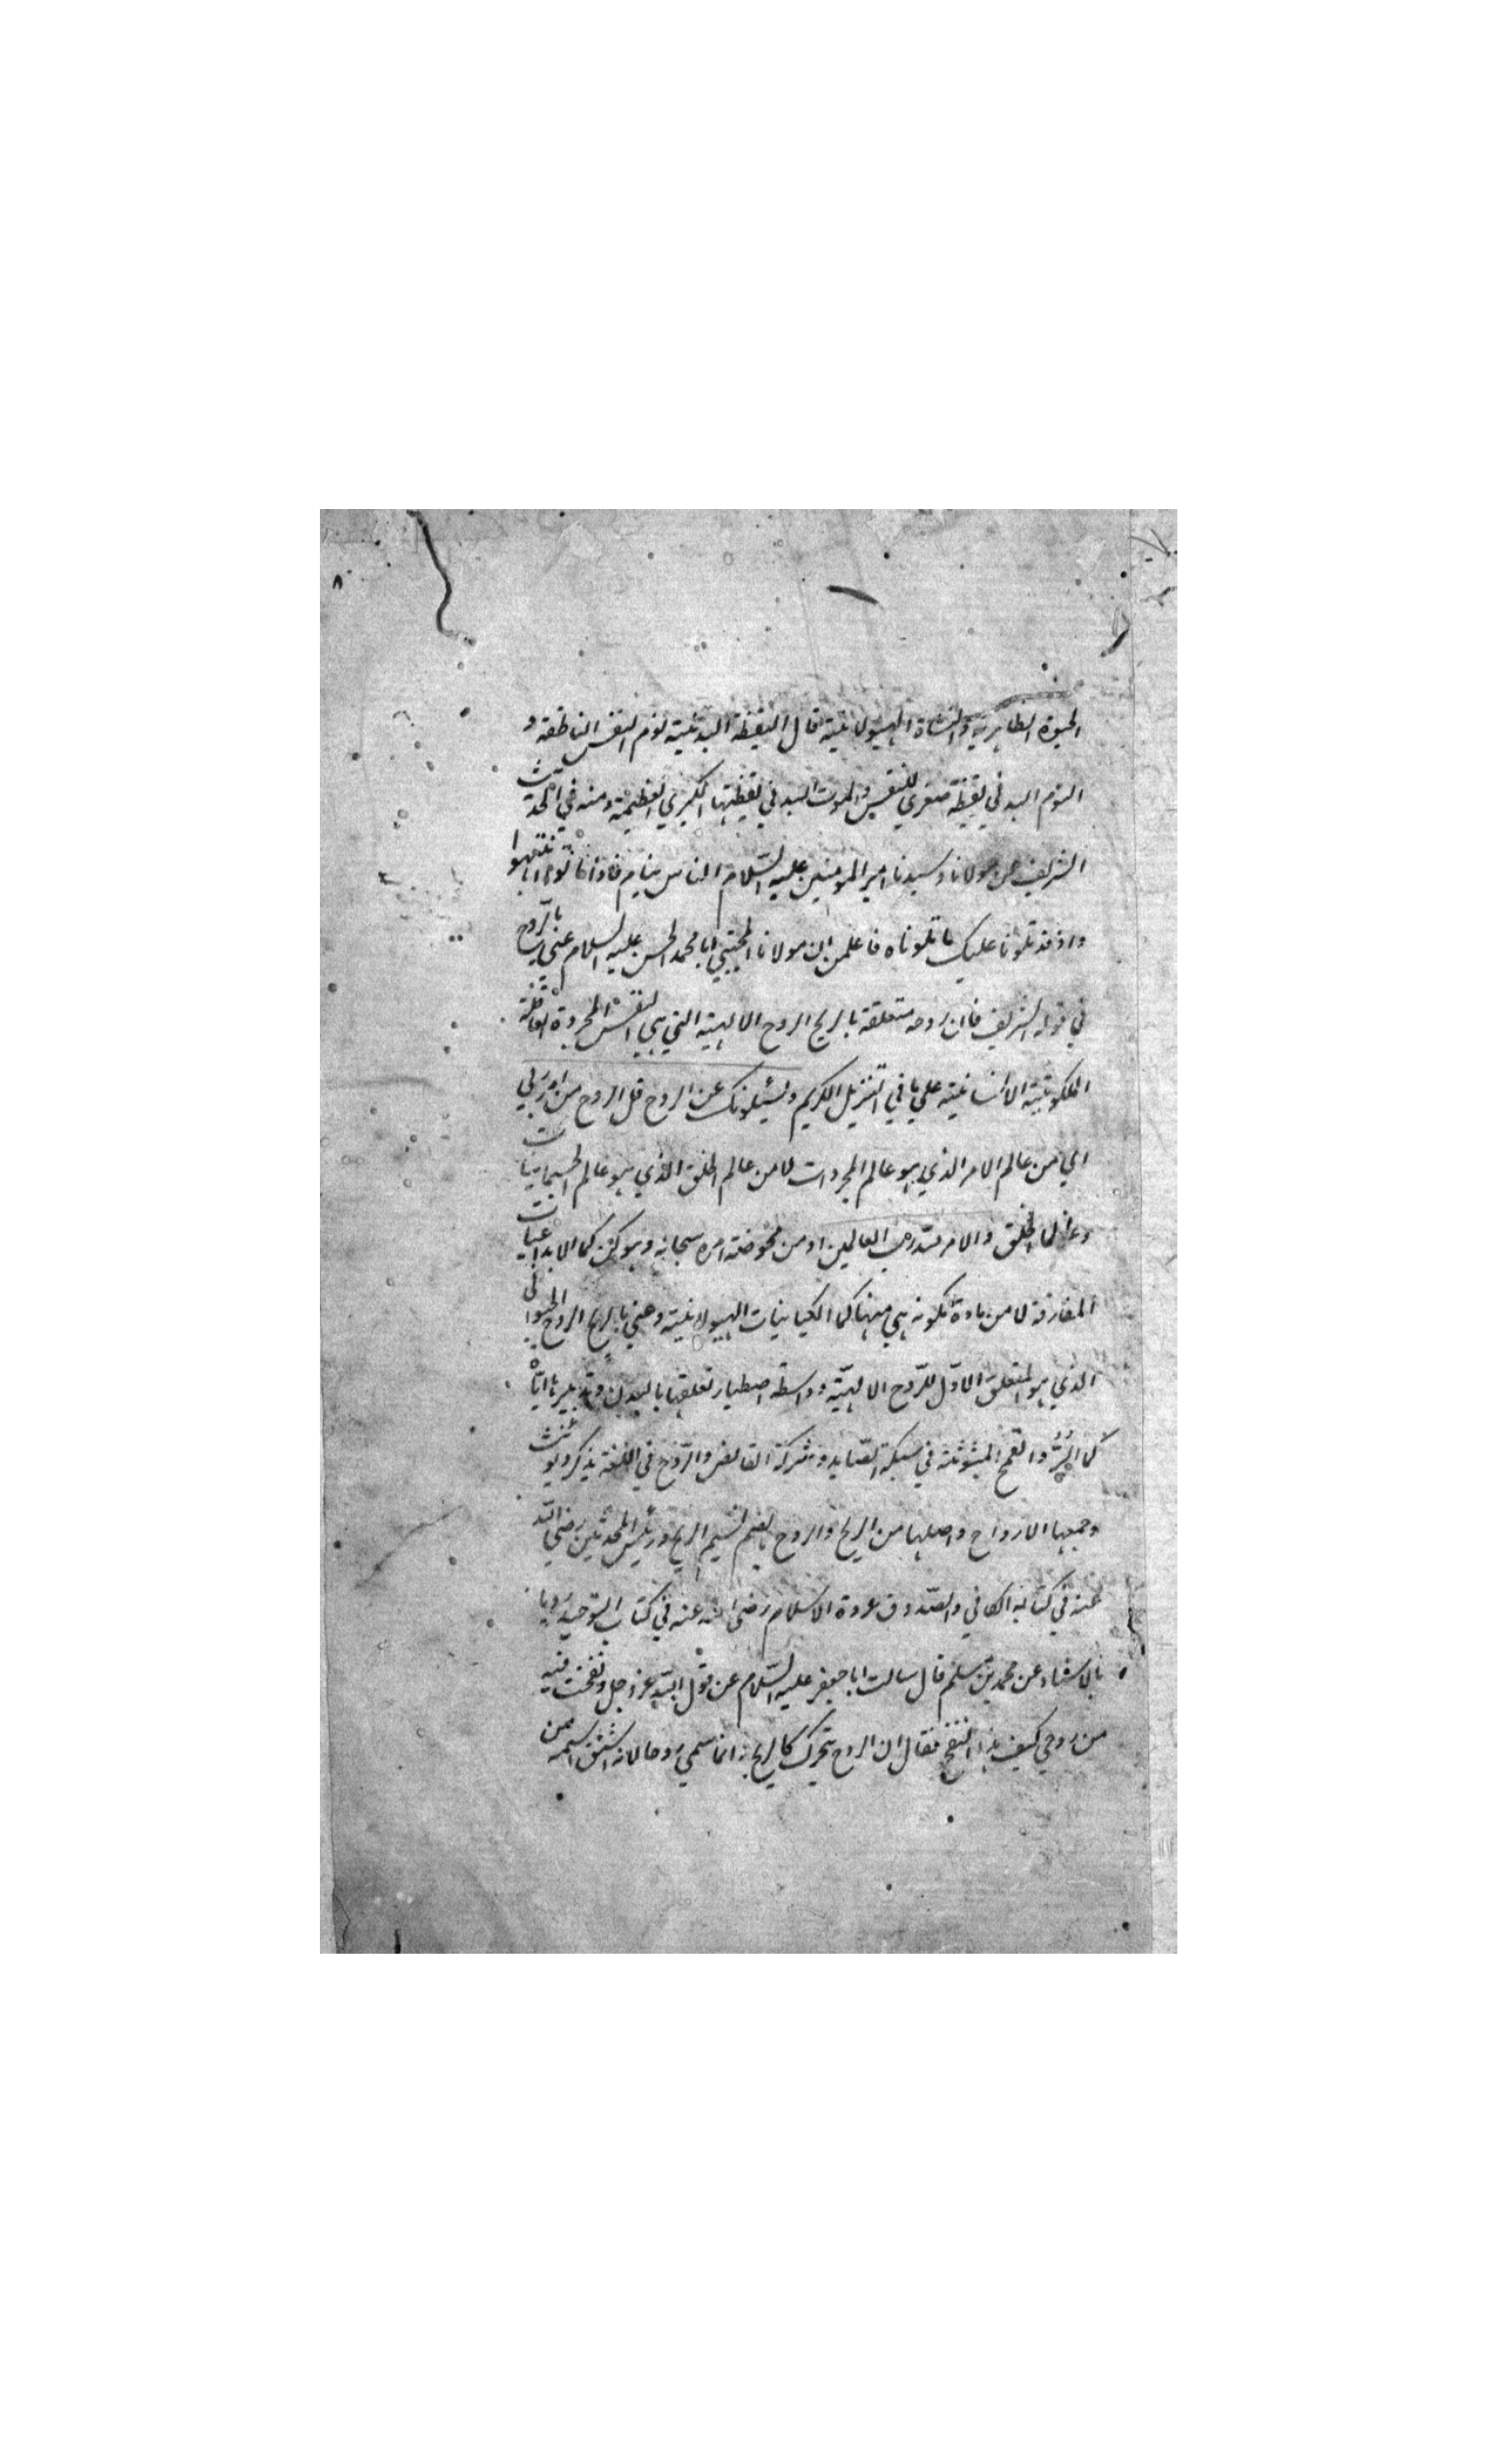 ٨
الحيوة الظاهرية والنشاة الهيولانية قال اليقظة البدنية نوم النفس الناطقة و
النوم البدني يقظة صغري للنفس والموت البدني يقظتها الكبري العظيمة ومنه في الحديث
الشريف عن مولانا وسيدنا امير المومنين عليه السّلام الناس نيام فاذا ماتوا انتبهوا
واذ قد تلونا عليك ما تلوناه فاعلمن ان مولانا المجتبي ابا محمد الحسن عليه السلام عني بالرّوح
في قوله الشريف فان روحه متعلقة بالريح الروح الالهية التي هي النفس المجردة العاقلة
الملكوتية الانسانية علي ما في التنزيل الكريم ويسئلونك عن الروح قل الروح من امر ربي
اي من عالم الامر الذي هو عالم المجردات لا من عالم الخلق الذي هو عالم الجسمانيات
وعالما الخلق والامر للّه رب العالمين او من محوضة امره سبحانه وهو كن كما الابداعيات
المفارقة لا من مادة تكونه هي منها كما الكيانيات الهيولانية وعني بالريح الروح الحيواني
الذي هو المتعلق الاوّل للرّوح الالهيّة وواسطة اصطياد تعلقها بالبدن وتدبيرها ايّاه
كما البُرُّ والقمح المبثوثة في شبكة الصّايد وشركة القانص والرّوح في اللغة يذكر ويونث
وجمعها الارواح واصلها من الريح والروح بمعنى نسيم الريح ورئيس المحدثين رضي الله
عنه في كتابه الكافي والصّدوق عروة الاسلام رضي الله عنه في كتاب التوحيد رويا
بالاسناد عن محمد بن مسلم قال سالت ابا جعفر عليه السّلام عن قول الله عز وجل ونفخت فيه
من روحي كيف هذا النفخ فقال ان الروح متحرك كالريح وانما سمي روحا لانه اشتق اسمه من